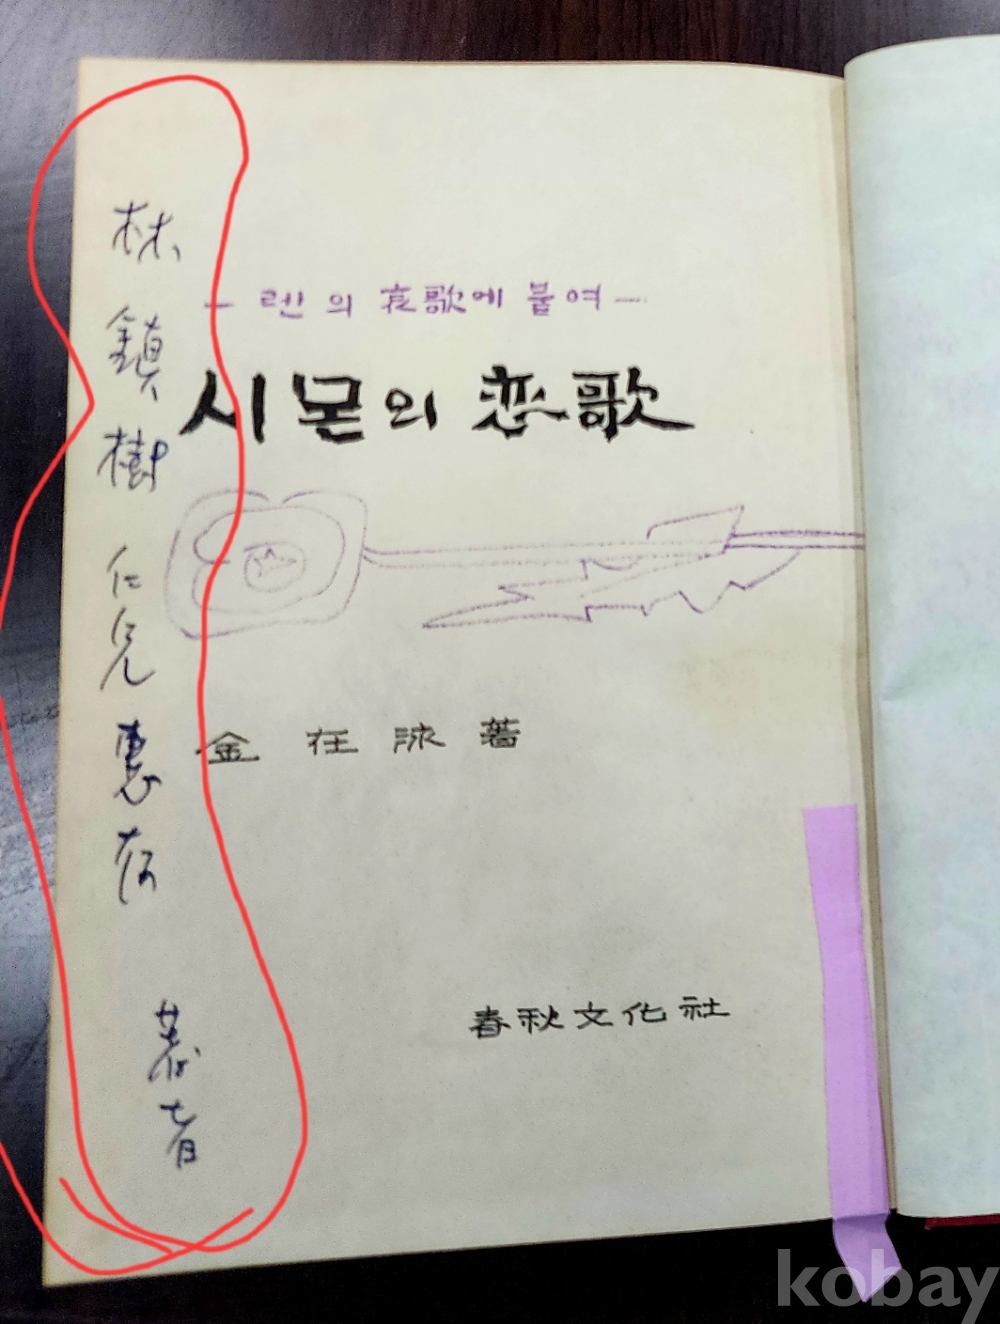 林鎭樹 仁兄 惠存
著者
— 렌의 哀歌에 붙여 —
시몬의 恋歌
金在沭 著
春秋文化社
kobay